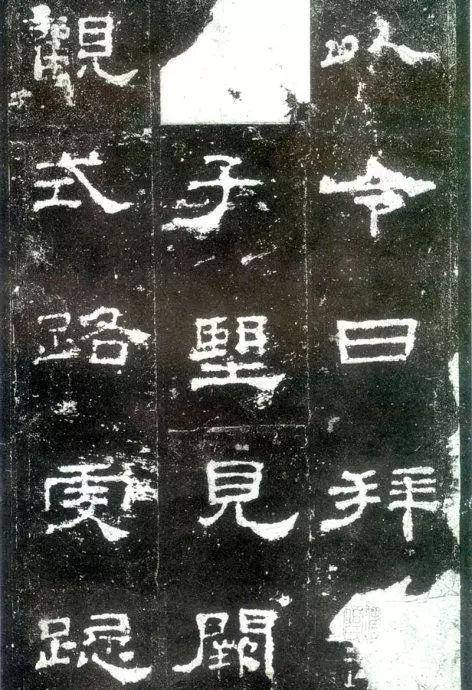 以令日拜
子朢見闕
觀式路虔跽